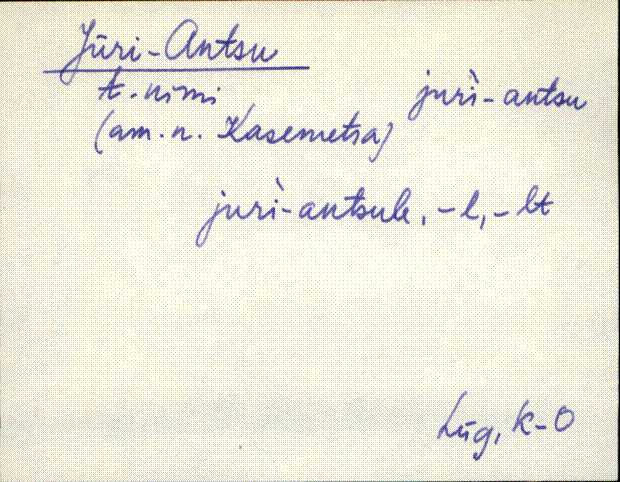 Jüri-Antsu
t. nimi juri-antsu
(am. n. Kasemetsa)
juri-antsule, -l, -lt
Lüg, K-O